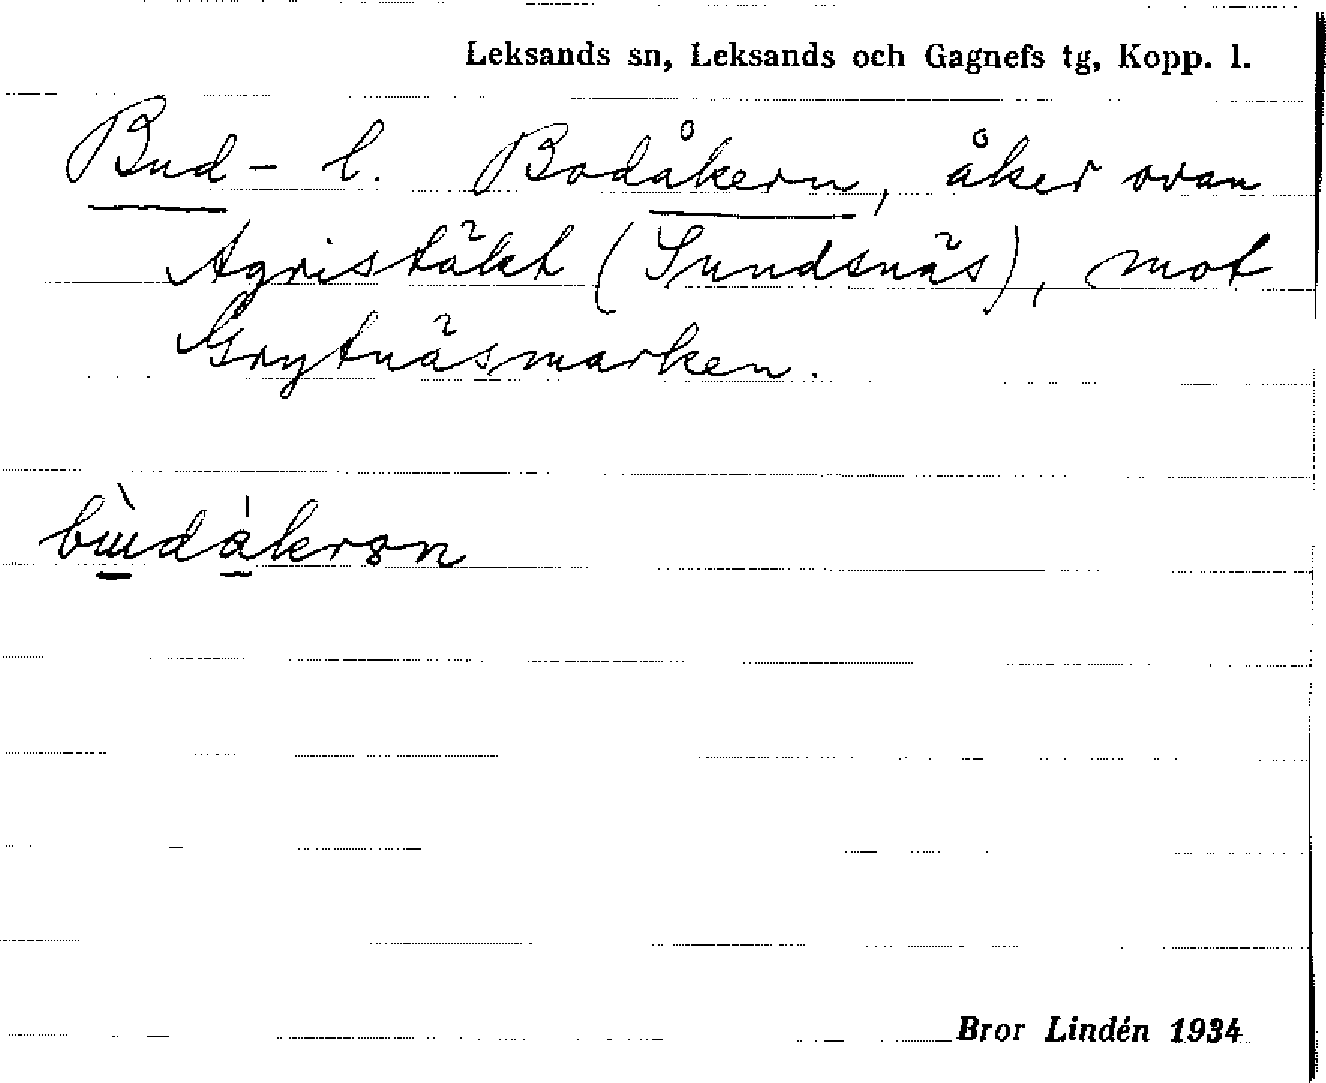 Leksands sn, Leksands och Gagnefs tg, Kopp. l.
Bud- l. Bodåkern, åker ovan
Agristäkt (Sundsnäs), mot
Grytnäsmarken.
bɯ̀dákrən
Bror Lindén 1934